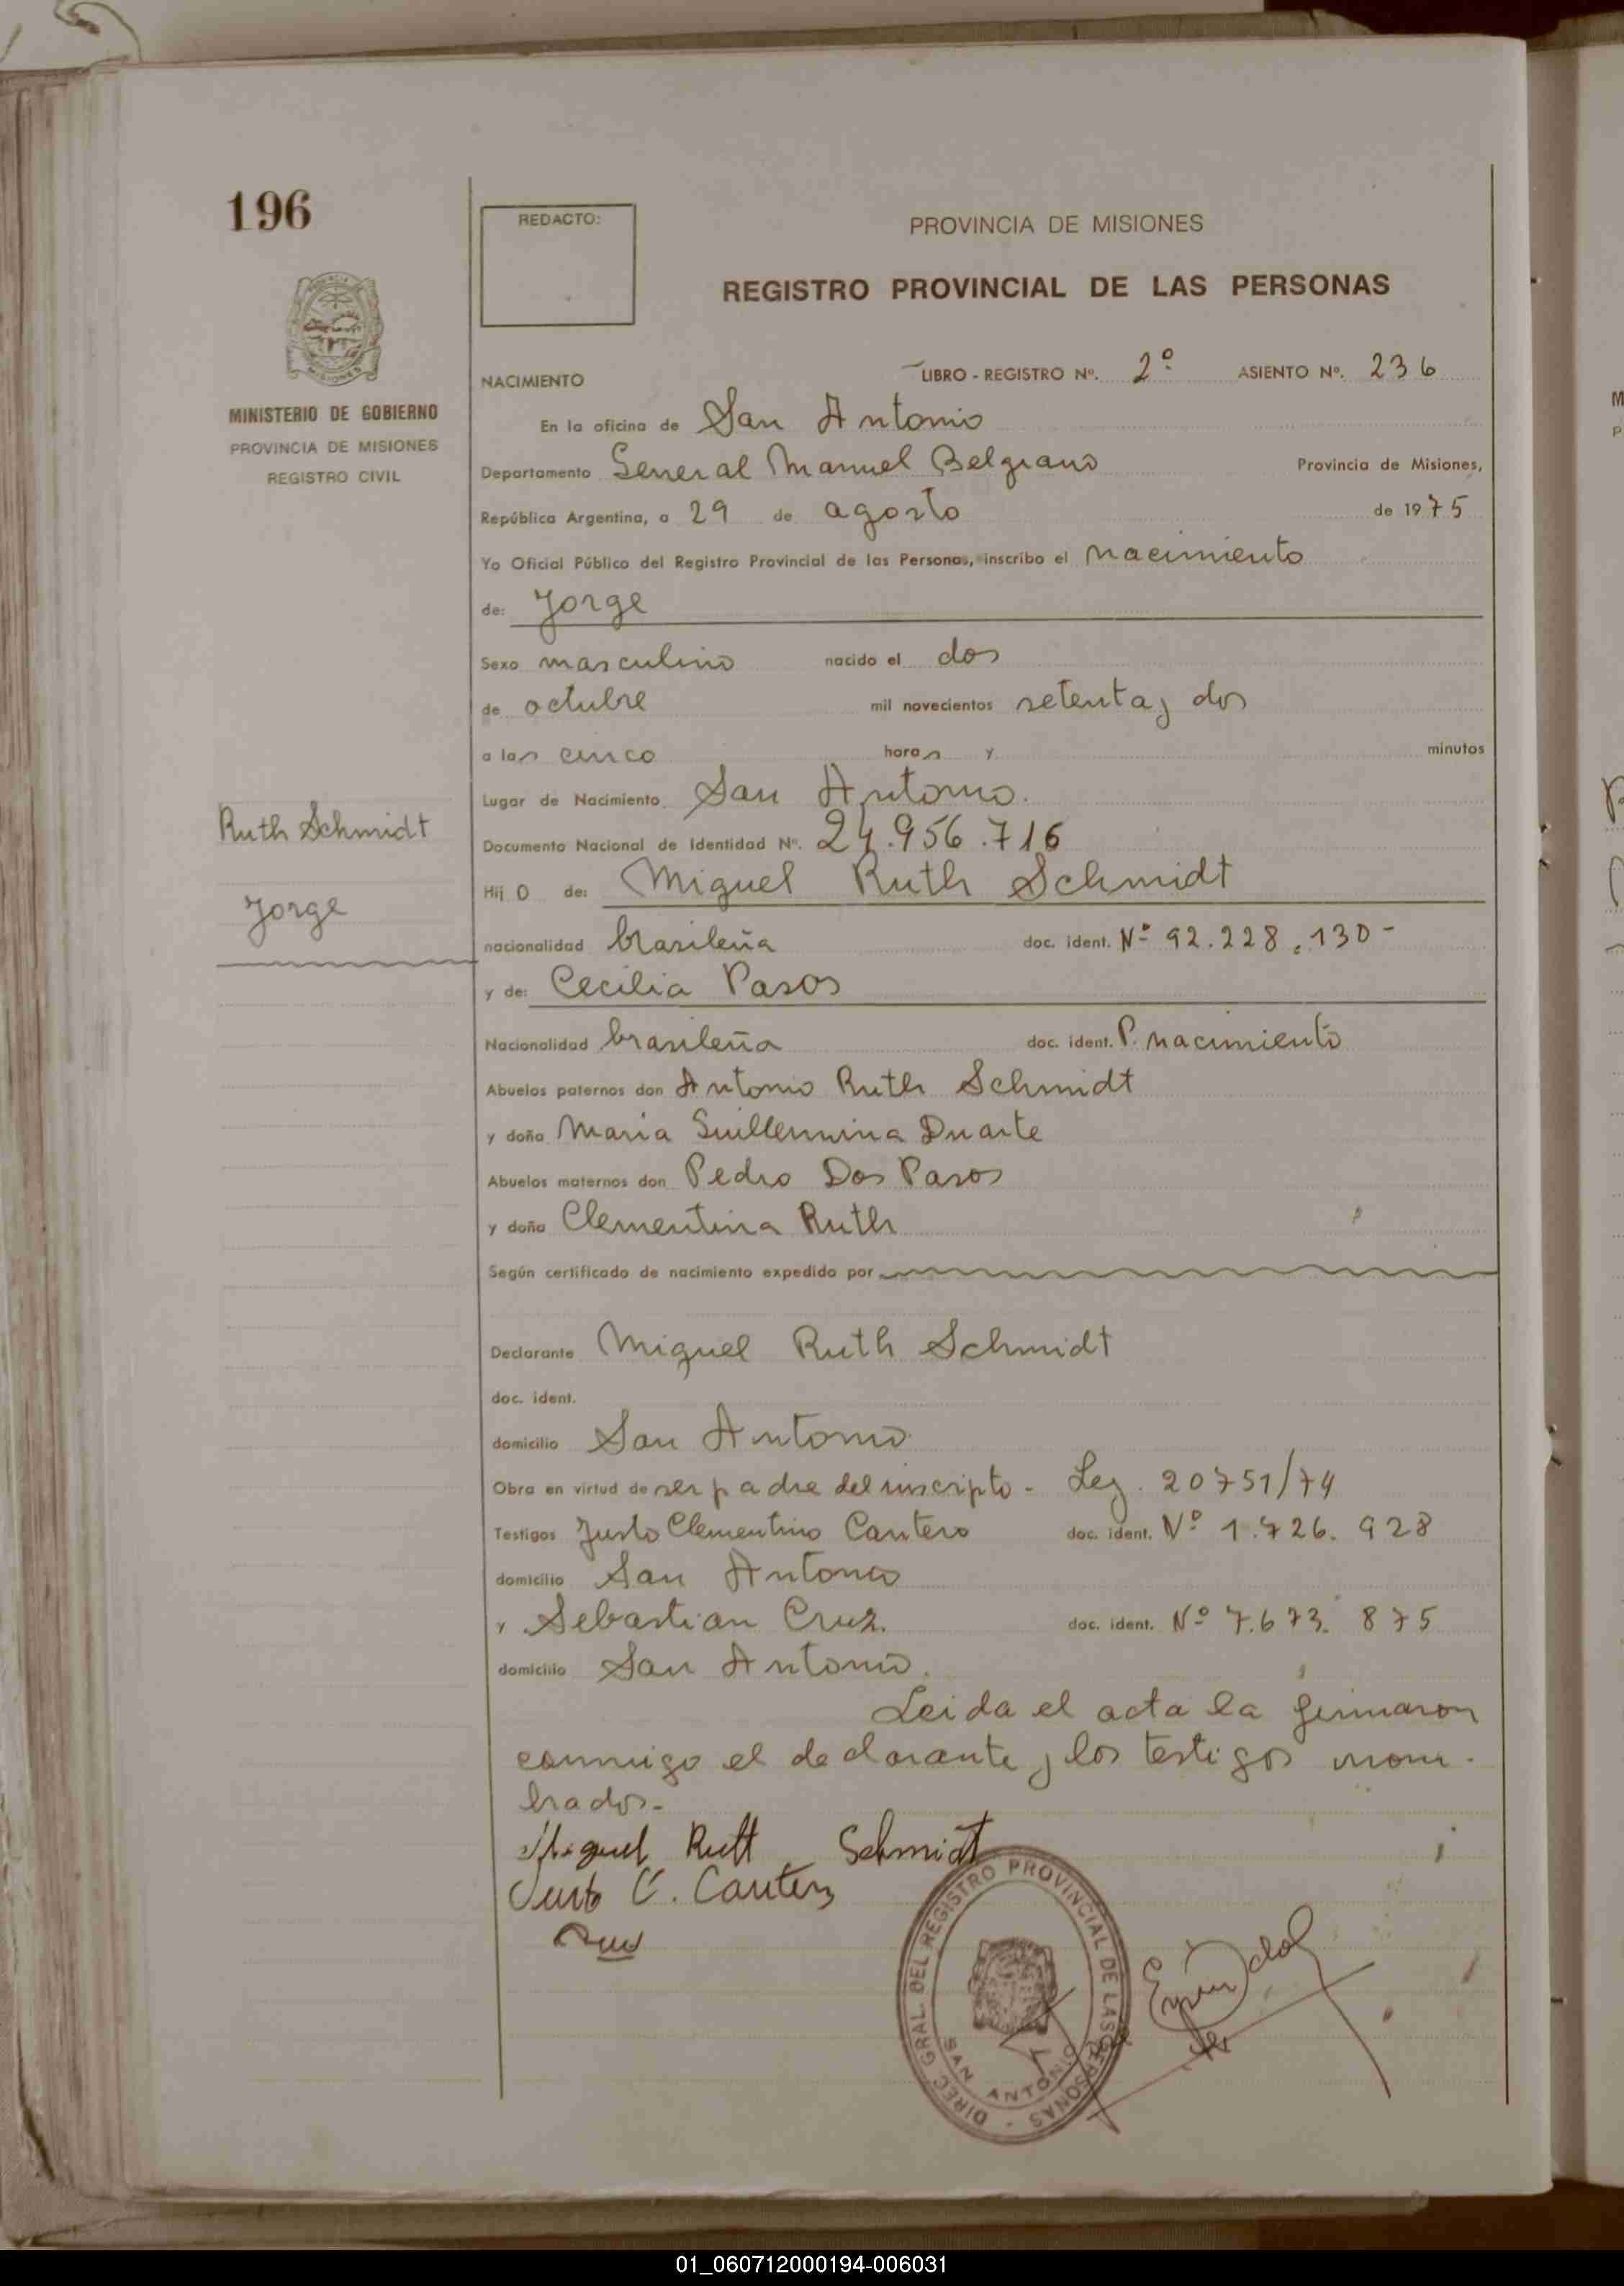 196
REDACTO:
PROVINCIA DE MISIONES
REGISTRO PROVINCIAL DE LAS PERSONAS
MISIONES
MINISTERIO DE GOBIERNO
PROVINCIA DE MISIONES
REGISTRO CIVIL
NACIMIENTO LIBRO - REGISTRO Nº. 2º ASIENTO Nº. 236
En la oficina de San Antonio
Departamento General Manuel Belgrano Provincia de Misiones,
República Argentina, a 29 de agosto de 1975
Yo Oficial Público del Registro Provincial de las Personas, inscribo el nacimiento
de: Jorge
Sexo masculino nacido el dos
de octubre mil novecientos setenta y dos
a las cinco horas y minutos
Lugar de Nacimiento San Antonio.
Ruth Schmidt
Jorge
Documento Nacional de Identidad Nº. 24.956.716
Hijo de: Miguel Ruth Schmidt
nacionalidad brasileña doc. ident. Nº 92.228.130-
y de: Cecilia Pasos
Nacionalidad brasileña doc. ident. P. nacimiento
Abuelos paternos don Antonio Ruth Schmidt
y doña Maria Guillermina Duarte
Abuelos maternos don Pedro Dos Pasos
y doña Clementina Ruth
Según certificado de nacimiento expedido por
Declarante Miguel Ruth Schmidt
doc. ident.
domicilio San Antonio
Obra en virtud de ser padre del inscripto - Ley. 20751/74
Testigos Justo Clementino Cantero doc. ident. Nº 1.726.928
domicilio San Antonio
y Sebastian Cruz. doc. ident. Nº 7.673.875
domicilio San Antonio.
Leida el acta la firmaron
conmigo el declarante y los testigos nom-
brados.-
Miguel Rutt Schmidt
Justo C. Cantero
DIREC. GRAL. DEL REGISTRO PROVINCIAL DE LAS PERSONAS
SAN ANTONIO
01_060712000194-006031